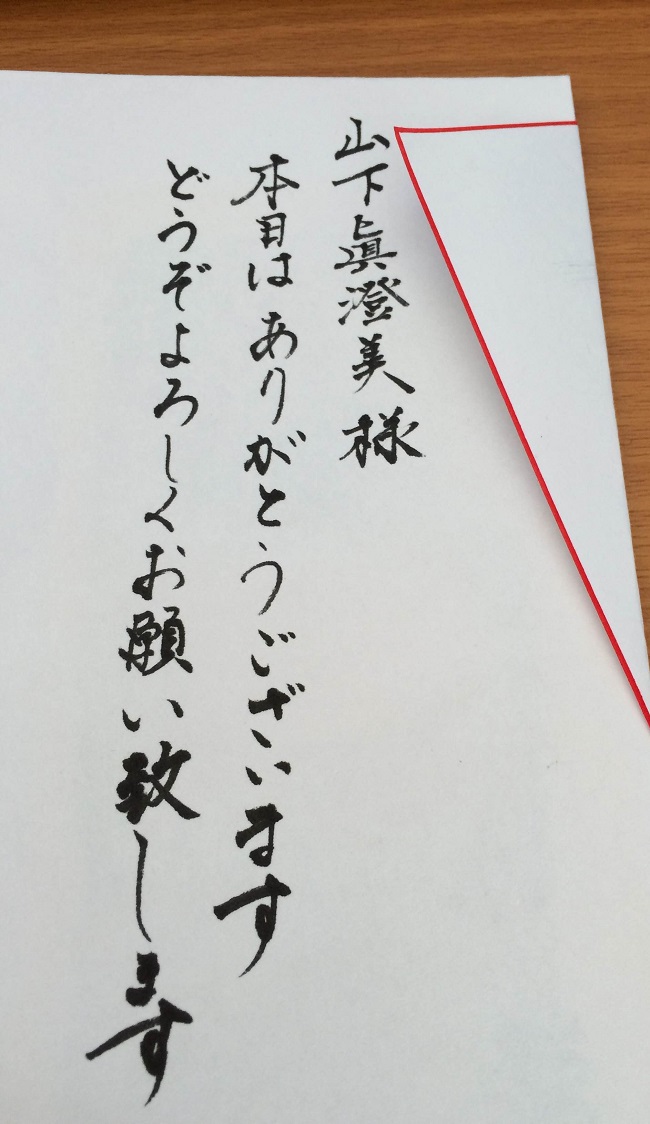 山下眞澄美様
本日はありがとうございます
どうぞよろしくお願い致します